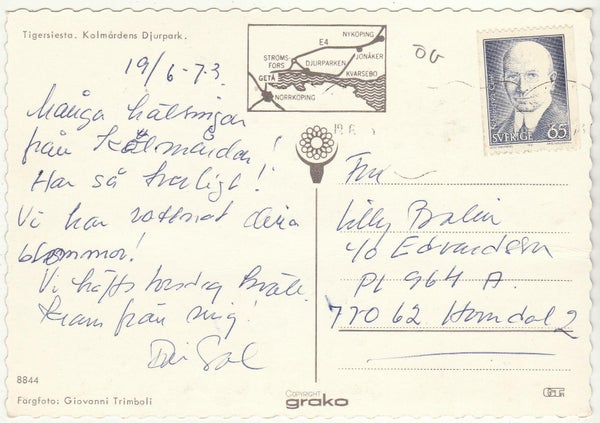 Tigersiesta. Kolmårdens Djurpark.
19/6-73
Många hälsningar
från Kolmården!
Har så trevligt!
Vi har vattnat dina
blommor!
Vi
Kram från mig!
Din
8844
Färgfoto: Giovanni Trimboli
NYKÖPING
E4
JONÅKER
STRÖMS-
FORS
DJURPARKEN
KVARSEBO
GETÅ
NORRKÖPING
SVERIGE 65
Fru
Lilly Bolin
c/o Edvardsson
Pl 964 A.
770 62 Horndal 2
COPYRIGHT
grako